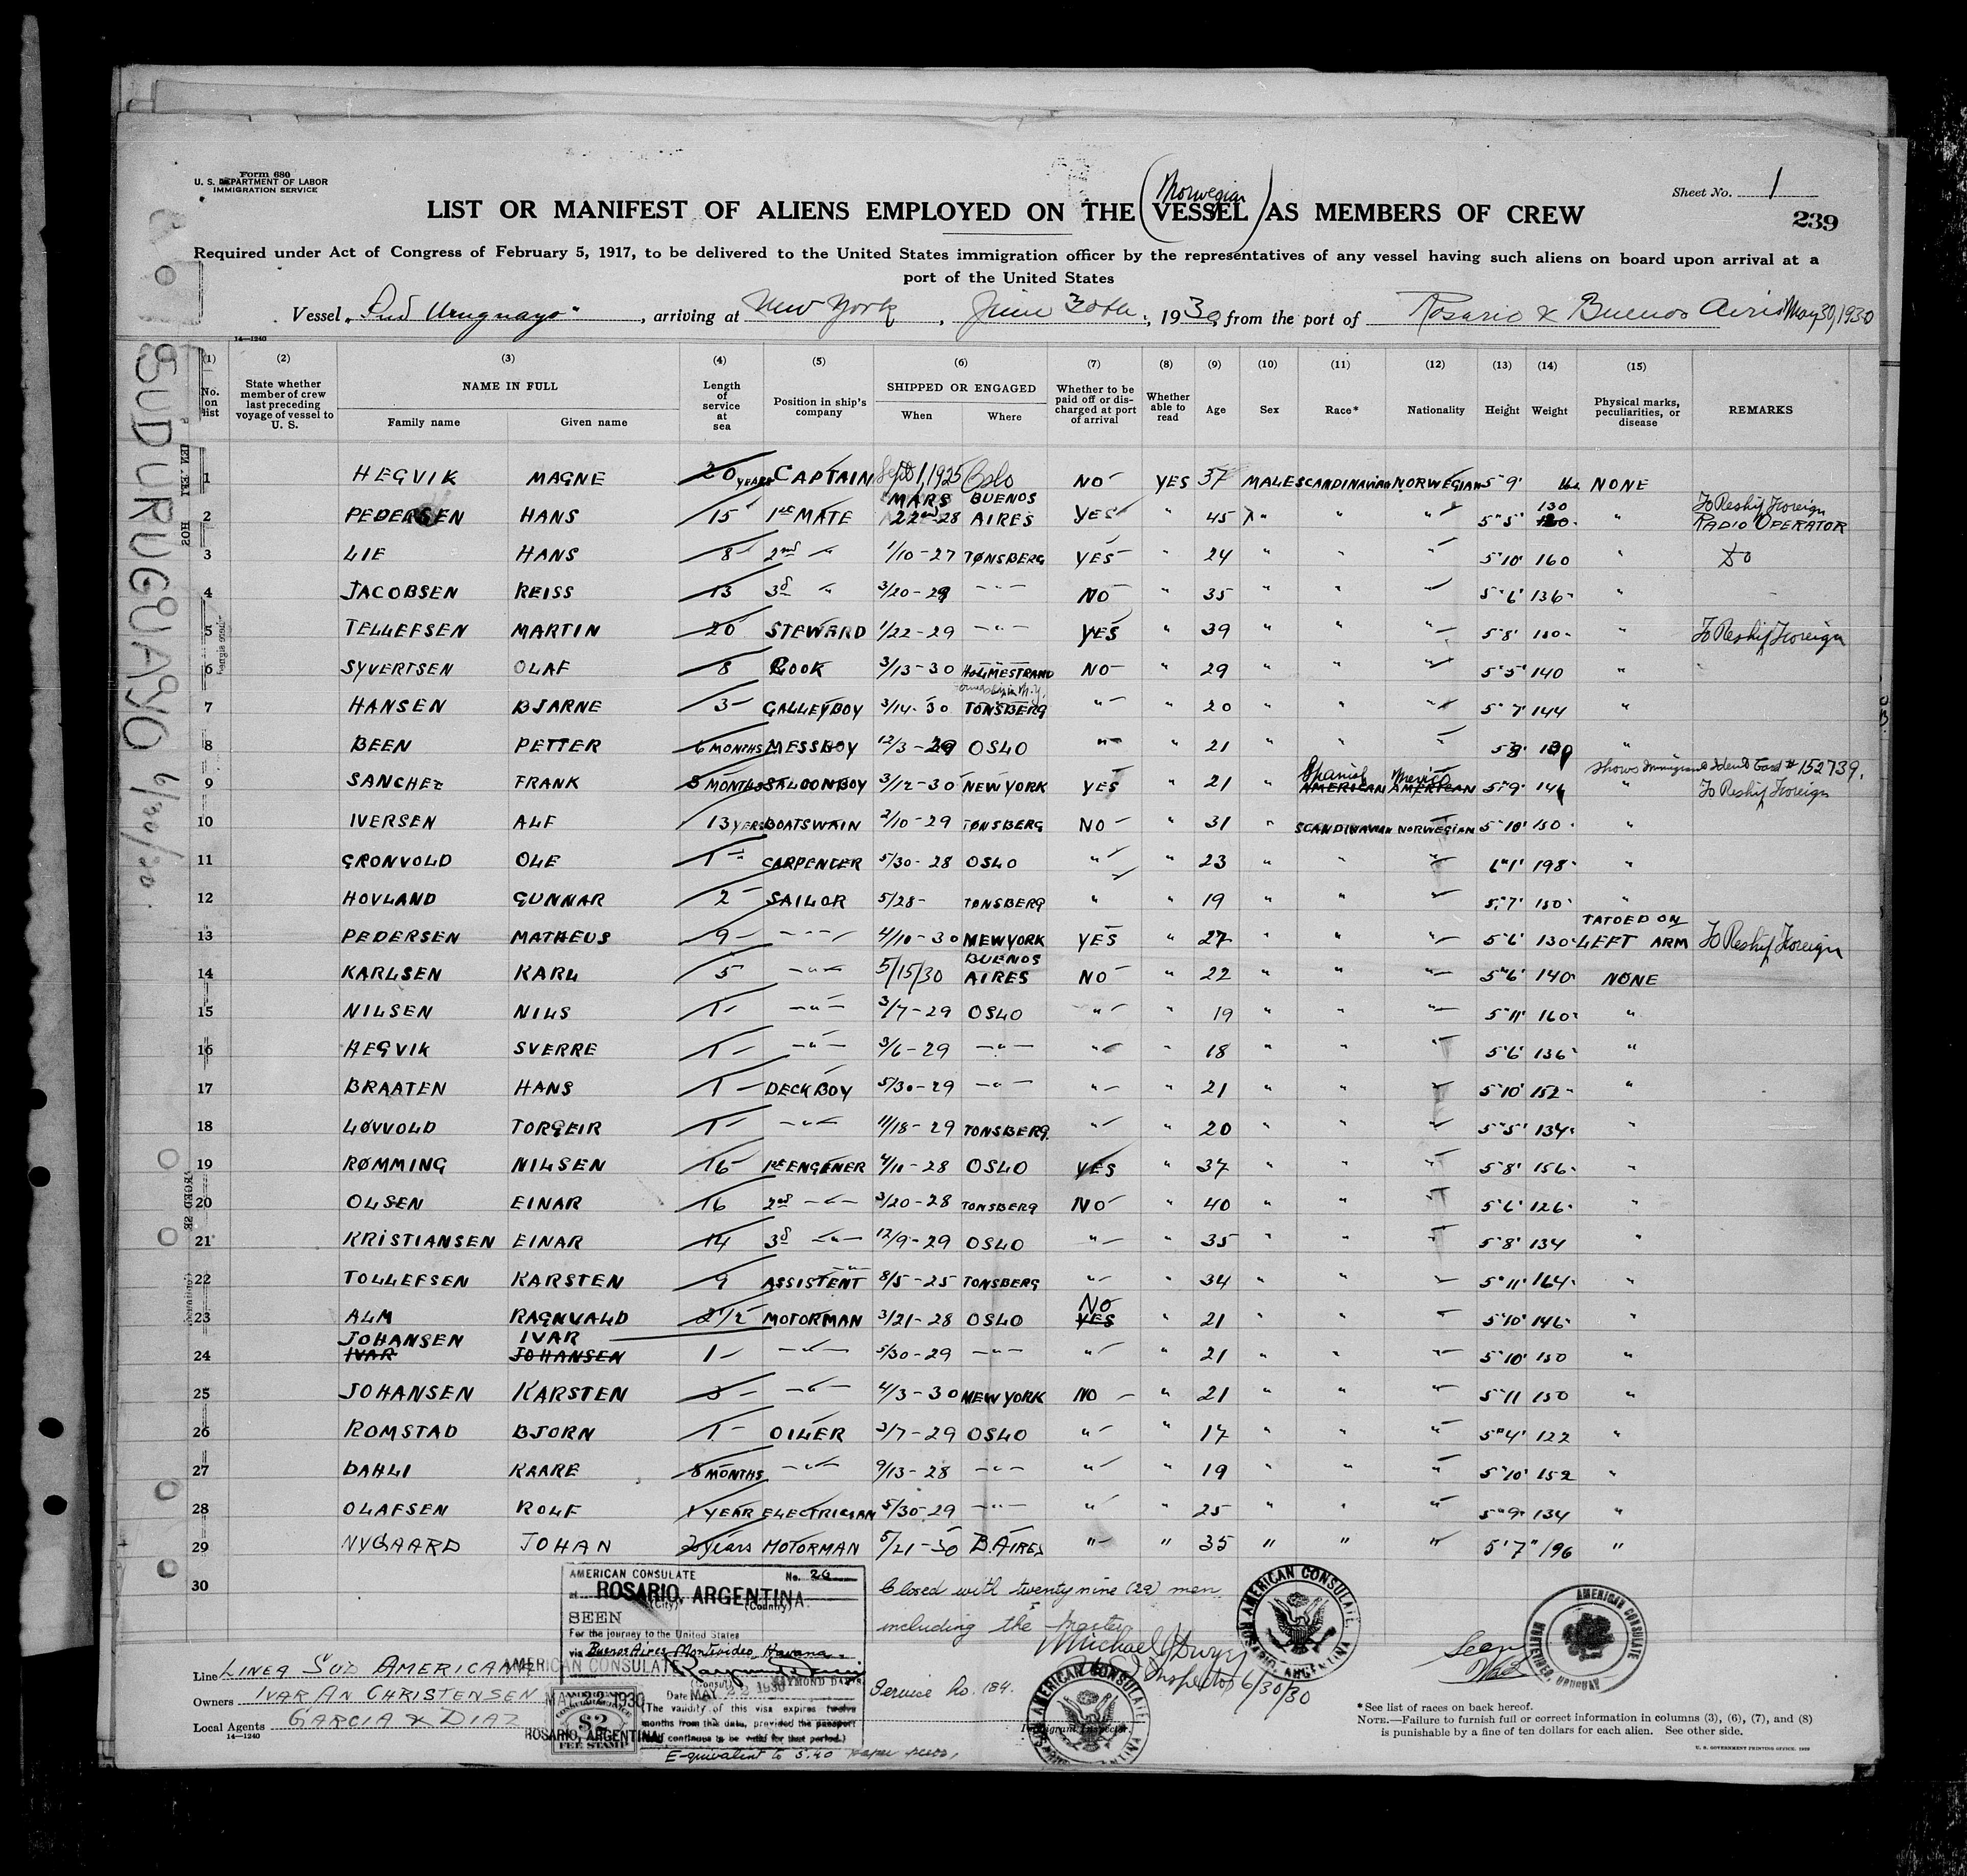 Form 680
U. S. DEPARTMENT OF LABOR
IMMIGRATION SERVICE
Sheet No. 1
239
LIST OR MANIFEST OF ALIENS EMPLOYED ON THE (Norwegian VESSEL) AS MEMBERS OF CREW
Required under Act of Congress of February 5, 1917, to be delivered to the United States immigration officer by the representatives of any vessel having such aliens on board upon arrival at a
port of the United States
Vessel "Sud Uruguayo", arriving at New York, June 30th, 1930, from the port of Rosario & Buenos Aires May 30, 1930
14—1240
(1) (2) (3) (4) (5) (6) (7) (8) (9) (10) (11) (12) (13) (14) (15)
No. on list State whether member of crew last preceding voyage of vessel to U. S. NAME IN FULL Family name Given name Length of service at sea Position in ship's company SHIPPED OR ENGAGED When Where Whether to be paid off or discharged at port of arrival Whether able to read Age Sex Race* Nationality Height Weight Physical marks, peculiarities, or disease REMARKS
1 HEGVIK MAGNE 20 YEARS CAPTAIN Sept 1, 1925 Oslo NO YES 37 MALE SCANDINAVIAN NORWEGIAN 5"9' NONE
2 PEDERSEN HANS 15 1st MATE MARS 22nd-28 BUENOS AIRES YES " 45 " " " 5"5' 130 " To Reship Foreign RADIO OPERATOR
3 LIE HANS 8 2nd " 1/10-27 TØNSBERG YES " 24 " " " 5"10' 160 " Do
4 JACOBSEN REISS 13 3d " 3/20-29 -"- NO " 35 " " " 5"6' 136 "
5 TELLEFSEN MARTIN 20 STEWARD 1/22-29 -"- YES " 39 " " " 5"8' 180 " To Reship Foreign
6 SYVERTSEN OLAF 8 COOK 3/13-30 HOLMESTRAND NO " 29 " " " 5"5' 140 "
7 HANSEN BJARNE 3 GALLEYBOY 3/14-30 TONSBERG " " 20 " " " 5"7' 144 "
8 BEEN PETTER 6 MONTHS MESSBOY 12/3-29 OSLO " " 21 " " " 5'8' "
9 SANCHEZ FRANK 8 MONTHS SALOONBOY 3/12-30 NEW YORK YES " 21 " Spanish AMERICAN Mexico AMERICAN 5"9' " Shows Immigrant Ident Card # 152739. To Reship Foreign
10 IVERSEN ALF 13 YERS BOATSWAIN 2/10-29 TØNSBERG NO " 31 " SCANDINAVIAN NORWEGIAN 5"10' 150 "
11 GRONVOLD OLE 1 " CARPENTER 5/30-28 OSLO " " 23 " " " 6"1' 198 "
12 HOVLAND GUNNAR 2 SAILOR 5/28- TØNSBERG " " 19 " " " 5"7' 150 "
13 PEDERSEN MATHEUS 9 -"- 4/10-30 NEW YORK YES " 27 " " " 5"6' 130 TATOED ON LEFT ARM To Reship Foreign
14 KARLSEN KARL 5 -"- 5/15/30 BUENOS AIRES NO " 22 " " " 5"6' 140 NONE
15 NILSEN NILS 1 -"- 3/7-29 OSLO " " 19 " " " 5"11' 160 "
16 HEGVIK SVERRE 1 -"- 3/6-29 -"- " " 18 " " " 5"6' 136 "
17 BRAATEN HANS 1 DECKBOY 5/30-29 -"- " " 21 " " " 5"10' 152 "
18 LØVVOLD TORGEIR 1 -"- 11/18-29 TONSBERG " " 20 " " " 5"5' 134 "
19 RØMMING NILSEN 16 1st ENGENER 4/11-28 OSLO YES " 37 " " " 5"8' 156 "
20 OLSEN EINAR 16 2nd -"- 3/20-28 TONSBERG NO " 40 " " " 5"6' 126 "
21 KRISTIANSEN EINAR 14 3d -"- 12/9-29 OSLO " " 35 " " " 5"8' 134 "
22 TOLLEFSEN KARSTEN 9 ASSISTENT -"- 8/5-25 TONSBERG " " 34 " " " 5"11' 164 "
23 ALM RAGNVALD 2 1/2 MOTORMAN 3/21-28 OSLO NO YES " 21 " " " 5"10' 146 "
JOHANSEN IVAR
24 IVAR JOHANSEN 1 -"- 5/30-29 -"- " " 21 " " " 5"10' 150 "
25 JOHANSEN KARSTEN 3 -"- 4/3-30 NEW YORK NO " 21 " " " 5"11 150 "
26 ROMSTAD BJORN 1 OILER 3/7-29 OSLO " " 17 " " " 5"4' 122 "
27 DAHLI KAARE 8 MONTHS -"- 9/13-28 -"- " " 19 " " " 5"10' 152 "
28 OLAFSEN ROLF 1 YEAR ELECTRICIAN 5/30-29 -"- " " 25 " " " 5"9' 134 "
29 NYGAARD JOHAN 2 years MOTORMAN 5/21-30 B.AIRES " " 35 " " " 5'7" 196 "
30
SUDURUGUAYO 6/30/30
AMERICAN CONSULATE No. 26
at ROSARIO, ARGENTINA
(City) (Country)
SEEN
For the journey to the United States
via Buenos Aires, Montevideo, Havana
AMERICAN CONSULATE
(Consul)
Date MAY 22 1930
(The validity of this visa expires twelve
months from this date, provided the passport
continues to be valid for that period.)
MAY 22 1930
$2
FEE STAMP
ROSARIO, ARGENTINA
Equivalent to 5.40 paper pesos,
Closed with twenty nine (29) men
including the Master
Michael J Dwyer
Inspector 6/30/30
Service No. 184.
Immigrant Inspector.
AMERICAN CONSULATE ROSARIO, ARGENTINA
AMERICAN CONSULATE ROSARIO, ARGENTINA
Seen
AMERICAN CONSULATE MONTEVIDEO, URUGUAY
Line LINEA SUD AMERICANA
Owners IVAR AN CHRISTENSEN
Local Agents GARCIA & DIAZ
14—1240
*See list of races on back hereof.
NOTE.—Failure to furnish full or correct information in columns (3), (6), (7), and (8)
is punishable by a fine of ten dollars for each alien. See other side.